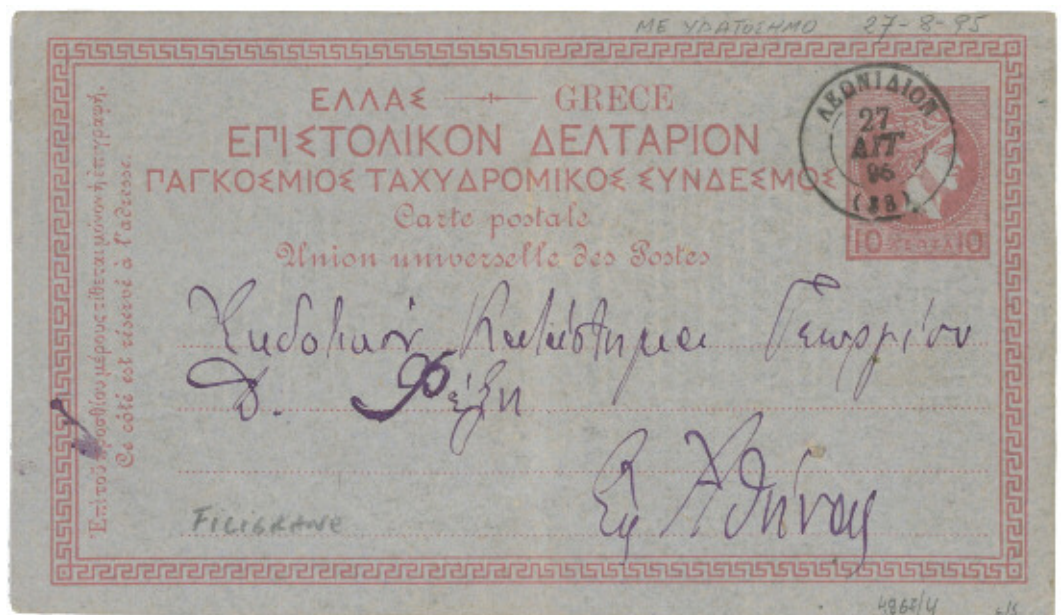 ΜΕ ΥΔΑΤΟΣΗΜΟ 27-8-95
ΕΛΛΑΣ GRECE
ΕΠΙΣΤΟΛΙΚΟΝ ΔΕΛΤΑΡΙΟΝ
ΠΑΓΚΟΣΜΙΟΣ ΤΑΧΥΔΡΟΜΙΚΟΣ ΣΥΝΔΕΣΜΟΣ
Carte postale
Union universelle des Postes
ΛΕΩΝΙΔΙΟΝ
27
ΑΥΓ
(38)
10 ΛΕΠΤΑ 10
Ἐπὶ τοῦ προσθίου μέρους τίθεται μόνον ἡ ἐπιγραφή.
Ce côté est réservé à l'adresse.
Ἐκδοτικὸν Κατάστημα Γεωργίου
Δ. Φέξη
Εἰς Ἀθήνας
FILIGRANE
4967/4